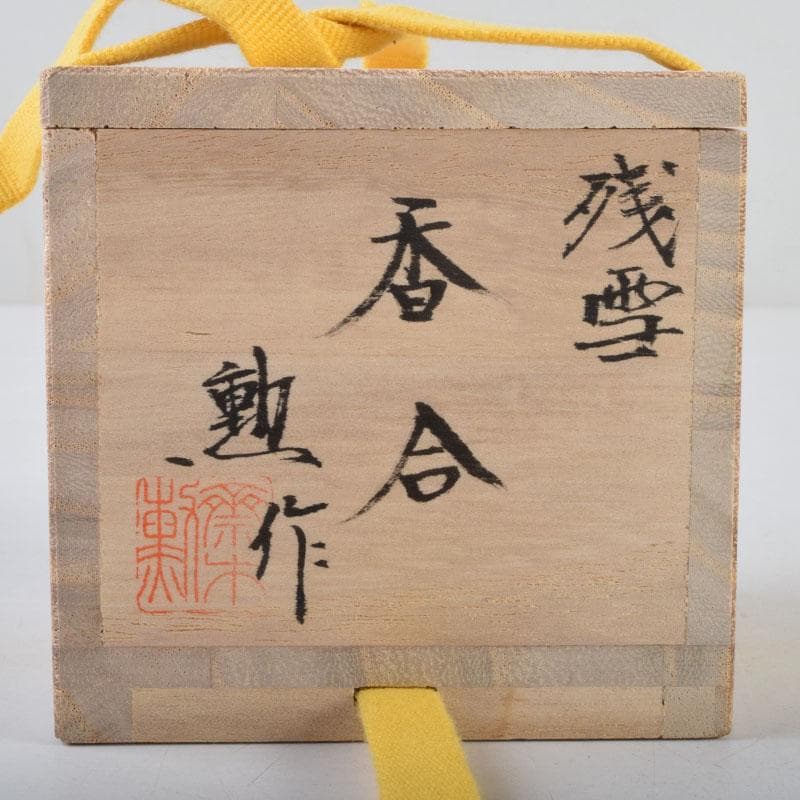 残雪
香合
勲作